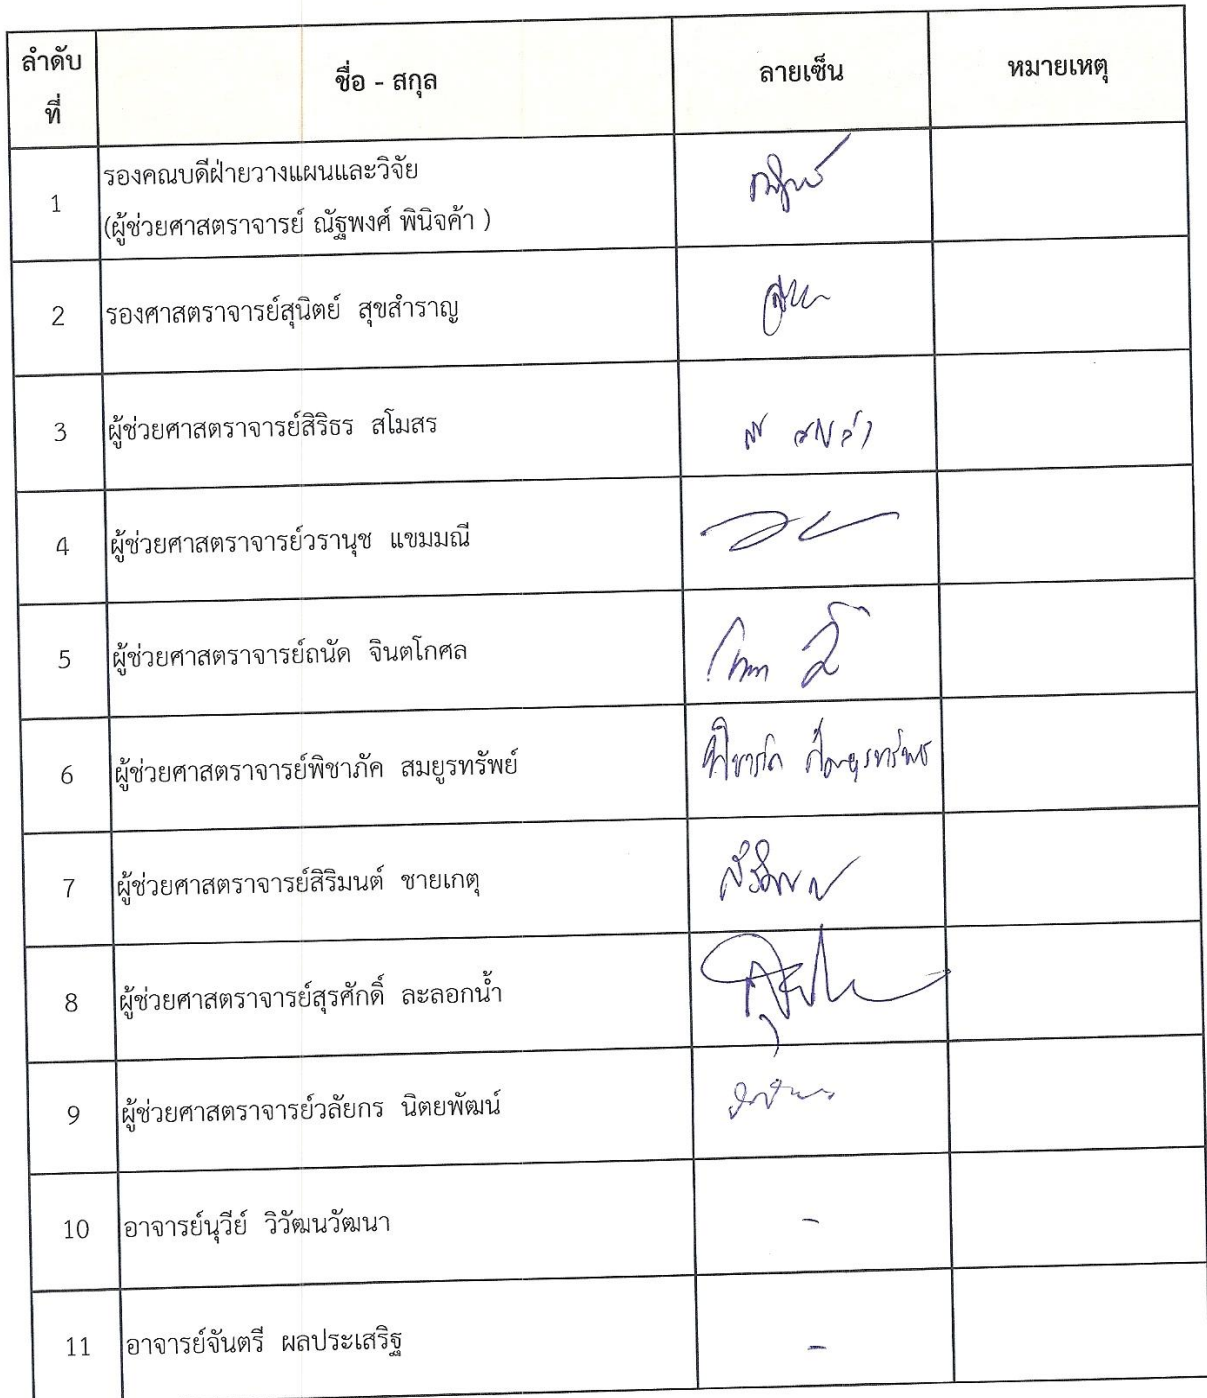 ลำดับ
ที่
ชื่อ - สกุล
ลายเซ็น
หมายเหตุ
1
รองคณบดีฝ่ายวางแผนและวิจัย
(ผู้ช่วยศาสตราจารย์ ณัฐพงศ์ พินิจค้า )
2 รองศาสตราจารย์สุนิตย์ สุขสำราญ
3 ผู้ช่วยศาสตราจารย์สิริธร สโมสร
4 ผู้ช่วยศาสตราจารย์วรานุช แขมมณี
5 ผู้ช่วยศาสตราจารย์ถนัด จินตโกศล
6 ผู้ช่วยศาสตราจารย์พิชาภัค สมยูรทรัพย์
7 ผู้ช่วยศาสตราจารย์สิริมนต์ ชายเกตุ
8 ผู้ช่วยศาสตราจารย์สุรศักดิ์ ละลอกน้ำ
9 ผู้ช่วยศาสตราจารย์วลัยกร นิตยพัฒน์
10 อาจารย์นุวีย์ วิวัฒนวัฒนา -
11 อาจารย์จันตรี ผลประเสริฐ -